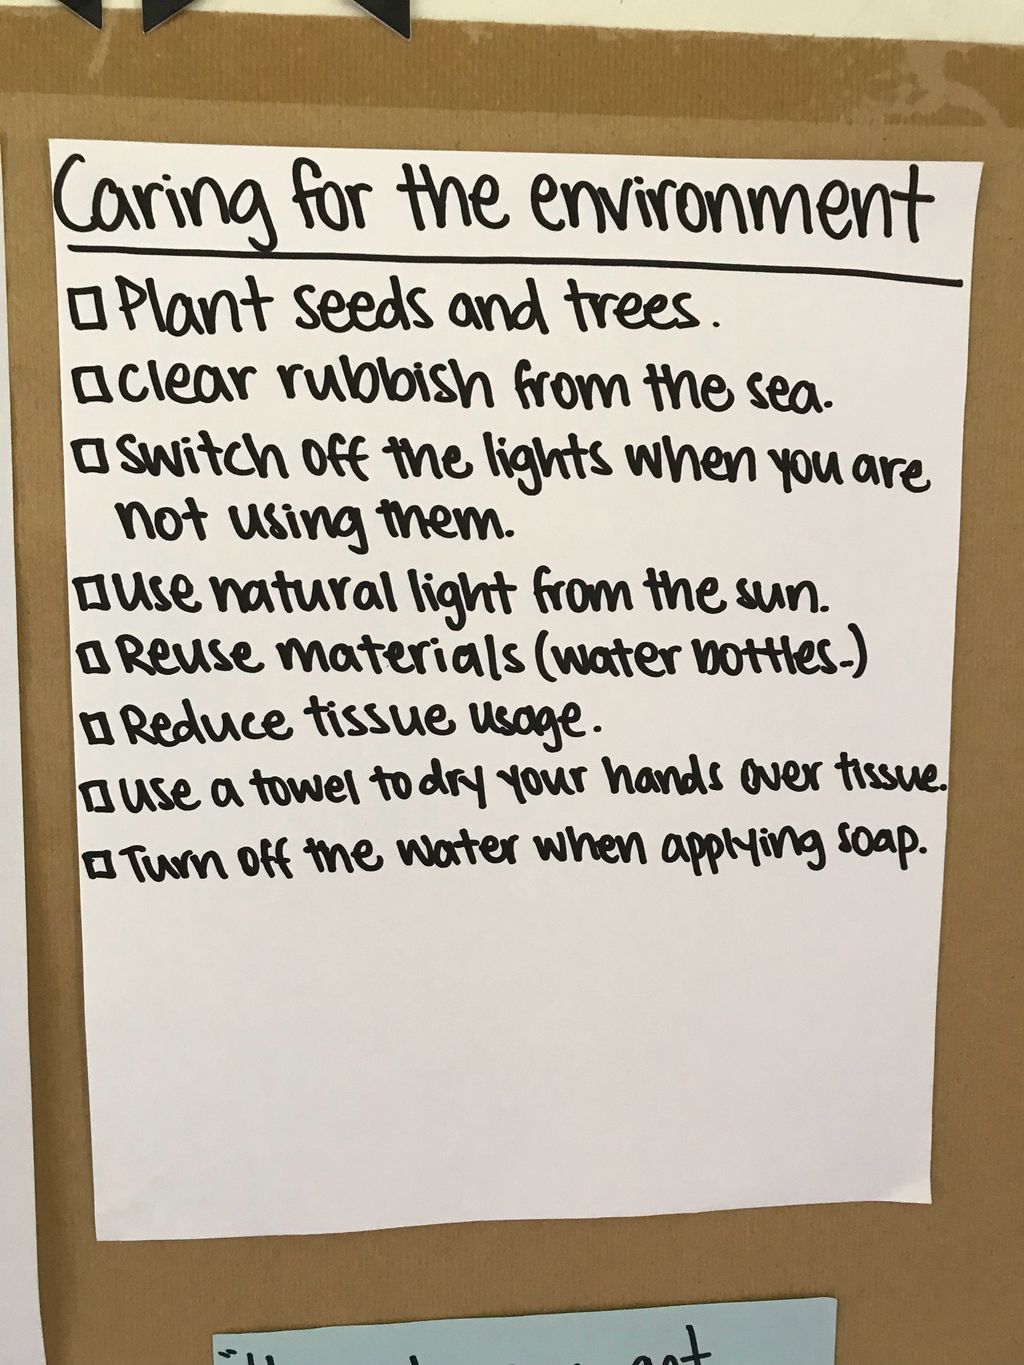 Caring for the environment
□ Plant seeds and trees.
□ clear rubbish from the sea.
□ Switch off the lights when you are
not using them.
□ use natural light from the sun.
□ Reuse materials (water bottles.)
□ Reduce tissue usage.
□ use a towel to dry your hands over tissue.
□ Turn off the water when applying soap.